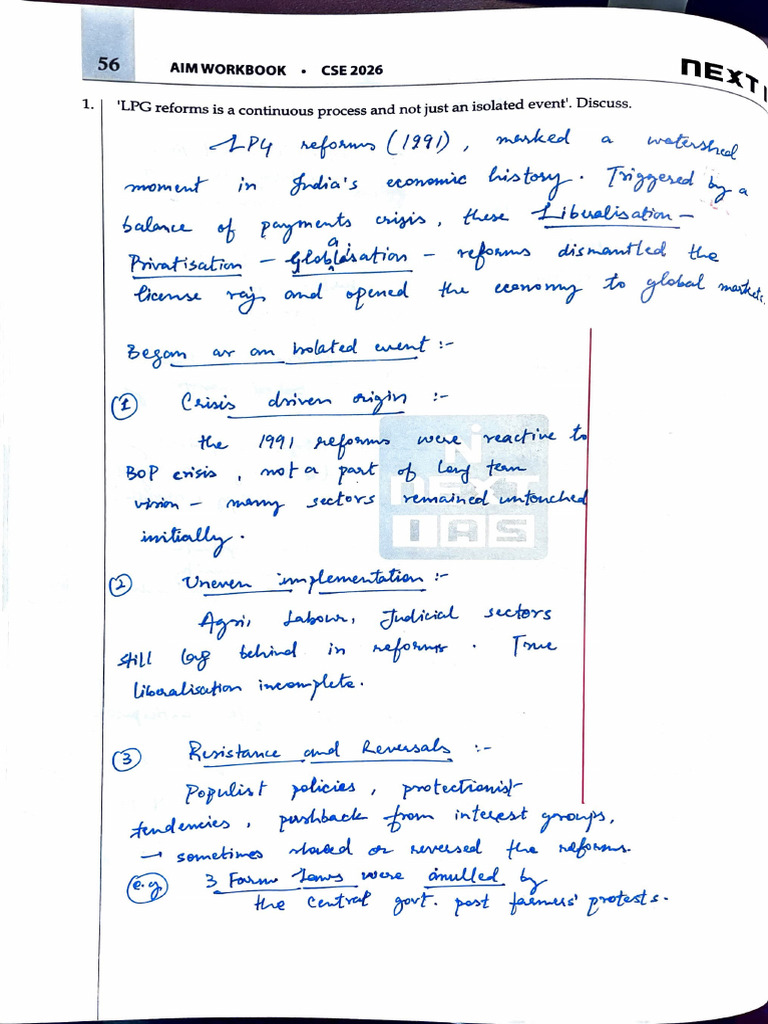 56
AIM WORKBOOK • CSE 2026
NEXT I
1. 'LPG reforms is a continuous process and not just an isolated event'. Discuss.
LPG reforms (1991), marked a watershed
moment in India's economic history. Triggered by a
balance of payments crisis, these Liberalisation –
Privatisation – Globalisation – reforms dismantled the
license raj and opened the economy to global markets.
Began as an Isolated event :-
① Crisis driven origin :-
the 1991 reforms were reactive to
BOP crisis, not a part of long term
vision – many sectors remained untouched
initially.
NEXT
IAS
② Uneven implementation :-
Agri, Labour, Judicial sectors
still lag behind in reforms. True
liberalisation incomplete.
③ Resistance and Reversals :-
Populist policies, protectionist
tendencies, pushback from interest groups,
→ sometimes slowed or reversed the reforms.
e.g. 3 Farm Laws were anulled by
the central govt. post farmers' protests.